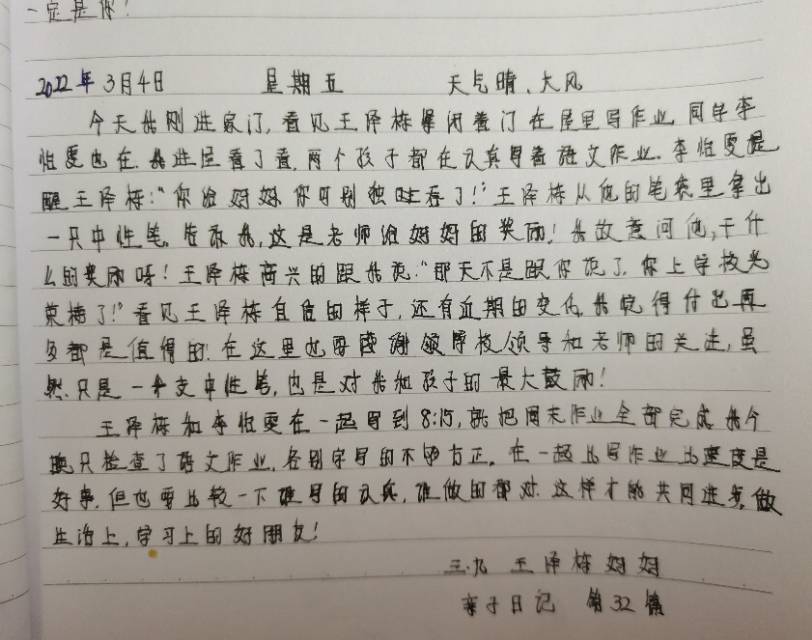 一定是你!
2022年3月4日 星期五 天气晴、大风
今天我刚进家门,看见王泽栋关闭着门在屋里写作业,同学李
怡更也在,我进屋看了看,两个孩子都在认真写着语文作业,李怡更提
醒王泽栋:“你给妈妈,你可别独吞了!”王泽栋从他的笔袋里拿出
一只中性笔,告诉我,这是老师给妈妈的奖励!我故意问他,干什
么的奖励呀!王泽栋高兴的跟我说:“那天不是跟你说了,你上学校光
荣榜了!”看见王泽栋自信的样子,还有近期的变化,我觉得付出再
多都是值得的!在这里也要感谢领导校领导和老师的关注,虽
然只是一个支中性笔,也是对我和孩子的最大鼓励!
王泽栋和李怡更在一起写到8:15,就把周末作业全部完成,我今
晚只检查了语文作业,各别字写的不够方正,在一起比写作业比速度是
好事,但也要比较一下谁写的认真,谁做的都对,这样才能共同进步,做
生活上,学习上的好朋友!
三.九 王泽栋妈妈
亲子日记 第32篇